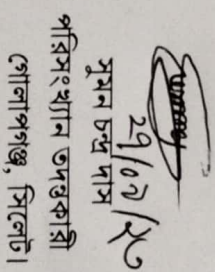 সুমন চন্দ্র দাস
পরিসংখ্যান তদন্তকারী
গোলাপগঞ্জ, সিলেট।